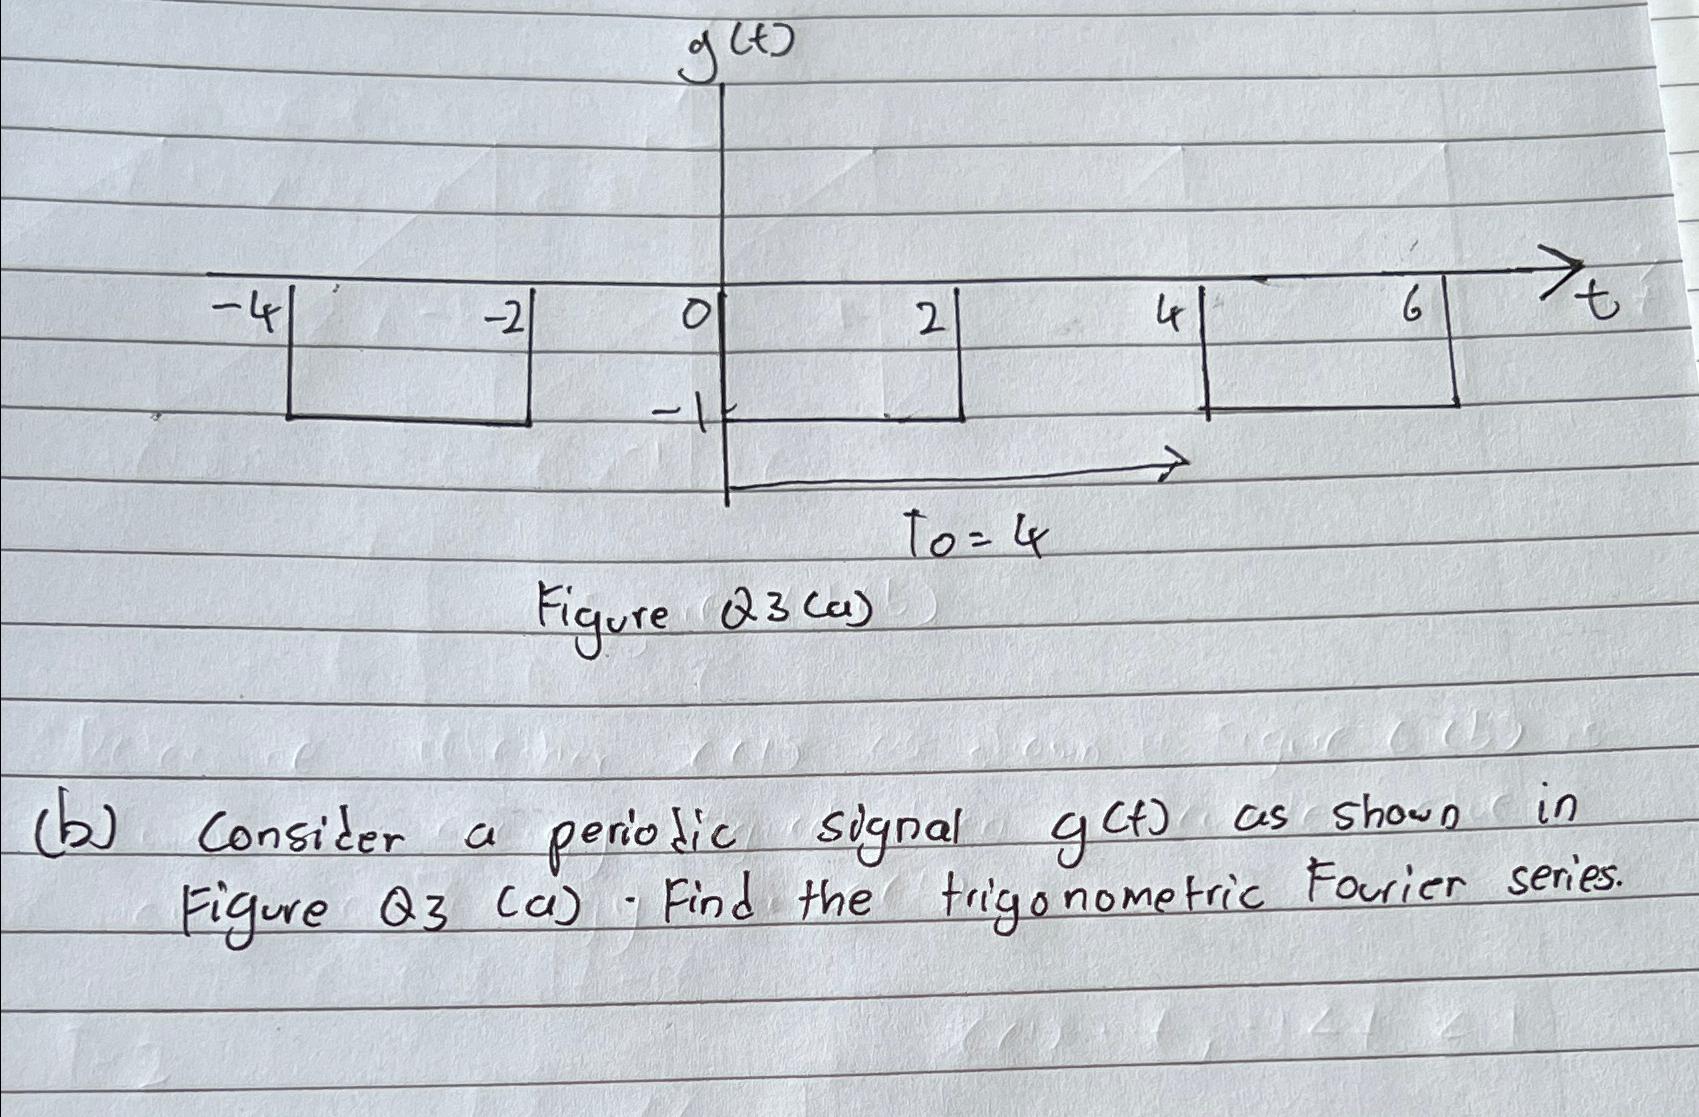 g(t)
-4 -2 0 2 4 6 t
-1
T0 = 4
Figure Q3(a)
(b) Consider a periodic signal g(t) as shown in
Figure Q3 (a). Find the trigonometric Fourier series.